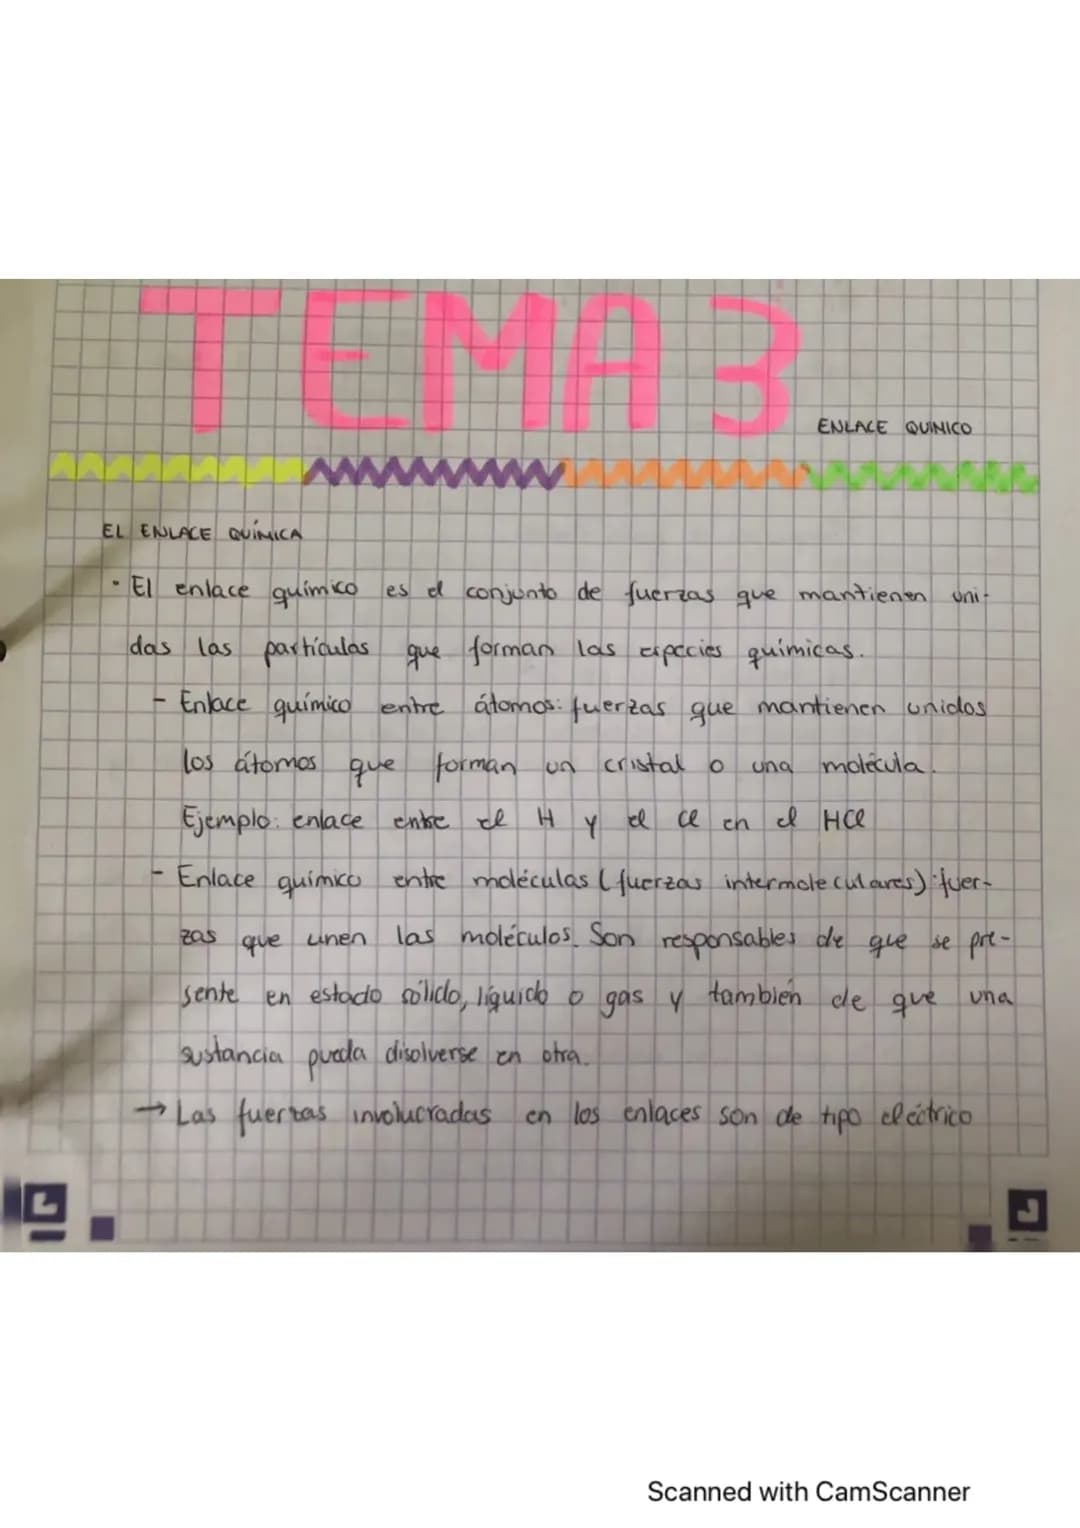 TEMA 3
ENLACE QUINICO
EL ENLACE QUÍMICA
· El enlace químico es el conjunto de fuerzas que mantienen uni-
das las partículas que forman las especies químicas.
- Enlace químico entre átomos: fuerzas que mantienen unidos
los átomos que forman un cristal o una molécula.
Ejemplo: enlace entre el H y el Cl en el HCl
- Enlace químico entre moléculas (fuerzas intermoleculares): fuer-
zas que unen las moléculas. Son responsables de que se pre-
sente en estado sólido, líquido o gas y también de que una
sustancia pueda disolverse en otra.
→ Las fuerzas involucradas en los enlaces son de tipo eléctrico
Scanned with CamScanner